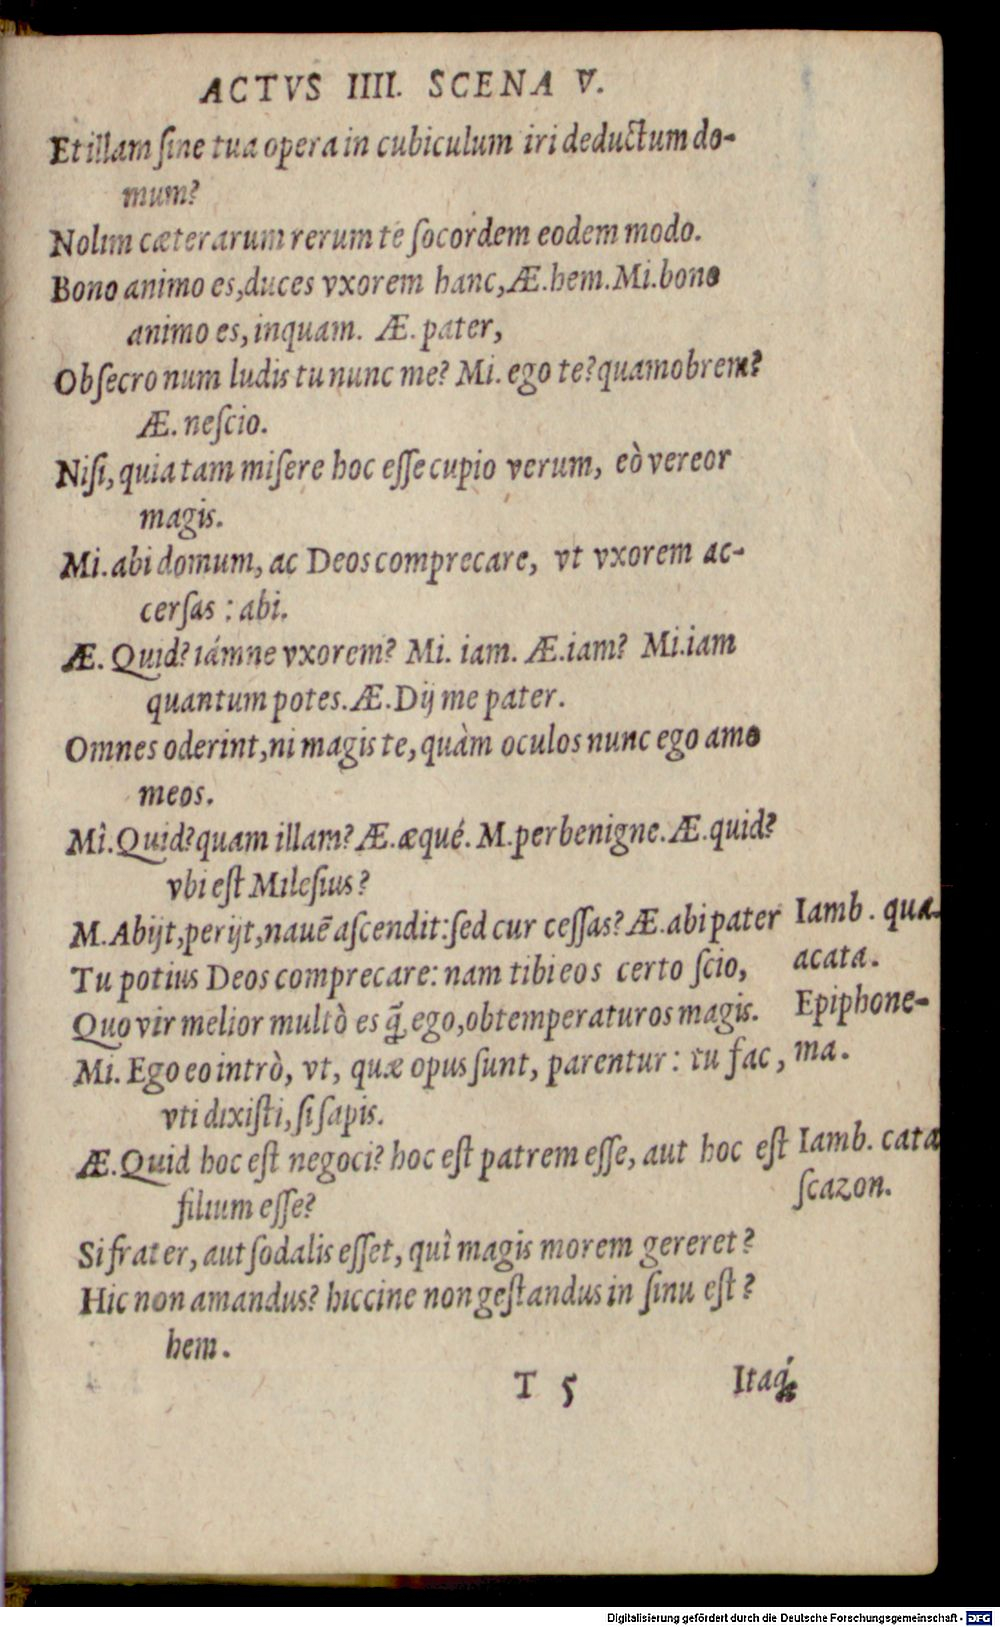 ACTVS IIII. SCENA V.
Et illam ſine tua opera in cubiculum iri deductum do-
mum?
Nolim cæterarum rerum te ſocordem eodem modo.
Bono animo es, duces vxorem hanc, Æ. hem. Mi. bono
animo es, inquam. Æ. pater,
Obſecro num ludis tu nunc me? Mi. ego te? quamobrem?
Æ. neſcio.
Niſi, quia tam miſere hoc eſſe cupio verum, eò vereor
magis.
Mi. abi domum, ac Deos comprecare, vt vxorem ac-
cerſas : abi.
Æ. Quid? iámne vxorem? Mi. iam. Æ. iam? Mi. iam
quantum potes. Æ. Dij me pater.
Omnes oderint, ni magis te, quàm oculos nunc ego amo
meos.
Mì. Quid? quam illam? Æ. æqué. M. perbenigne. Æ. quid?
vbi eſt Mileſius?
M. Abijt, perijt, nauē aſcendit: ſed cur ceſſas? Æ. abi pater
Iamb. qua-
Tu potius Deos comprecare: nam tibi eos certo ſcio,
acata.
Quo vir melior multò es q̃ ego, obtemperaturos magis.
Epiphone-
Mi. Ego eo intrò, vt, quæ opus ſunt, parentur: tu fac,
ma.
vti dixiſti, ſi ſapis.
Æ. Quid hoc eſt negoci? hoc eſt patrem eſſe, aut hoc eſt
Iamb. cata
filium eſſe?
ſcazon.
Si frater, aut ſodalis eſſet, quì magis morem gereret?
Hic non amandus? hiccine non geſtandus in ſinu eſt?
hem.
T 5 Itaq́;
Digitalisierung gefördert durch die Deutsche Forschungsgemeinschaft - DFG